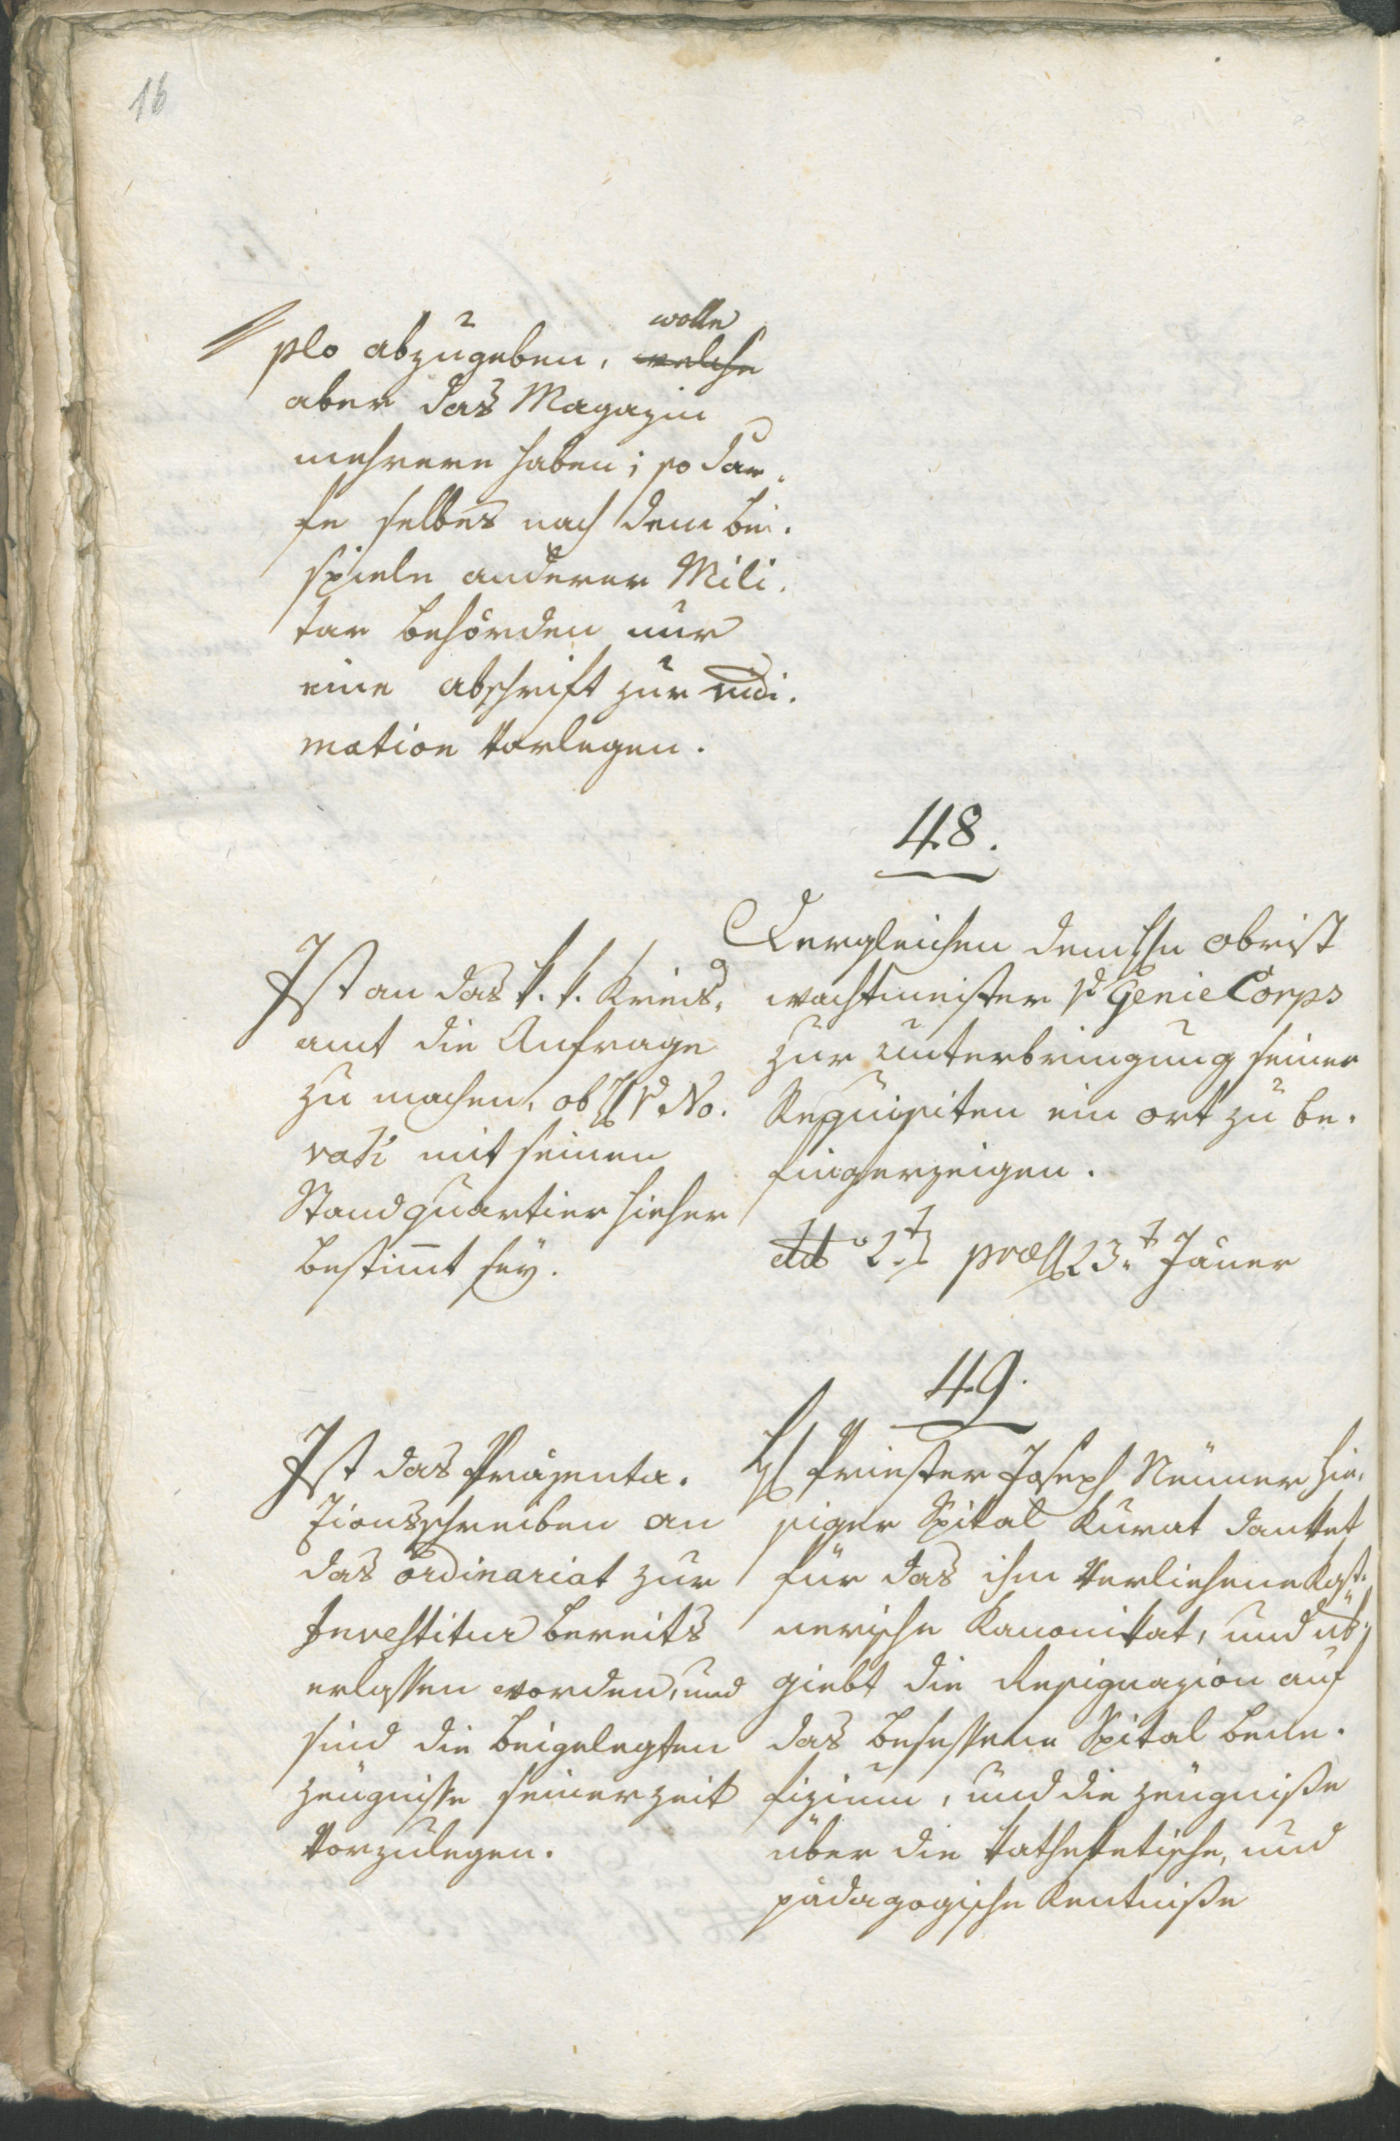 16
wolle
plo abzugeben, welche
aber das Magazin
mehrere haben; so dar-
fe selbes nach dem Bei-
spiele anderer Mili-
tar Behörden nur
eine Abschrift zur Vidi-
mation vorlegen.
48.
Ist an das k. k. Kreis-
amt die Anfrage
zu machen, ob H v No-
vaki mit seinen
Standquartier hieher
bestimt sey.
Dergleichen dem Hn Obrist
wachtmeister v Genie Corps
zur Unterbringung seiner
Requisiten ein ort zu be-
fingerzeigen.
ddto 2t præs 23t Jäner
49.
Ist das Präzenta-
zionsschreiben an
das ordinariat zur
Investitur bereits
erlassen worden, und
sind die beigelegten
Zeugnisse seinerzeit
vorzulegen.
H Priester Joseph Neuner hie-
siger Spital Kurat danket
für das ihm verliehene Kast-
nerische Kanonikat, und üb-
giebt die Resignazion auf
das besessene Spital bene-
fizium, und die Zeugniße
über die kathetetische, und
pädagogische Kentniße